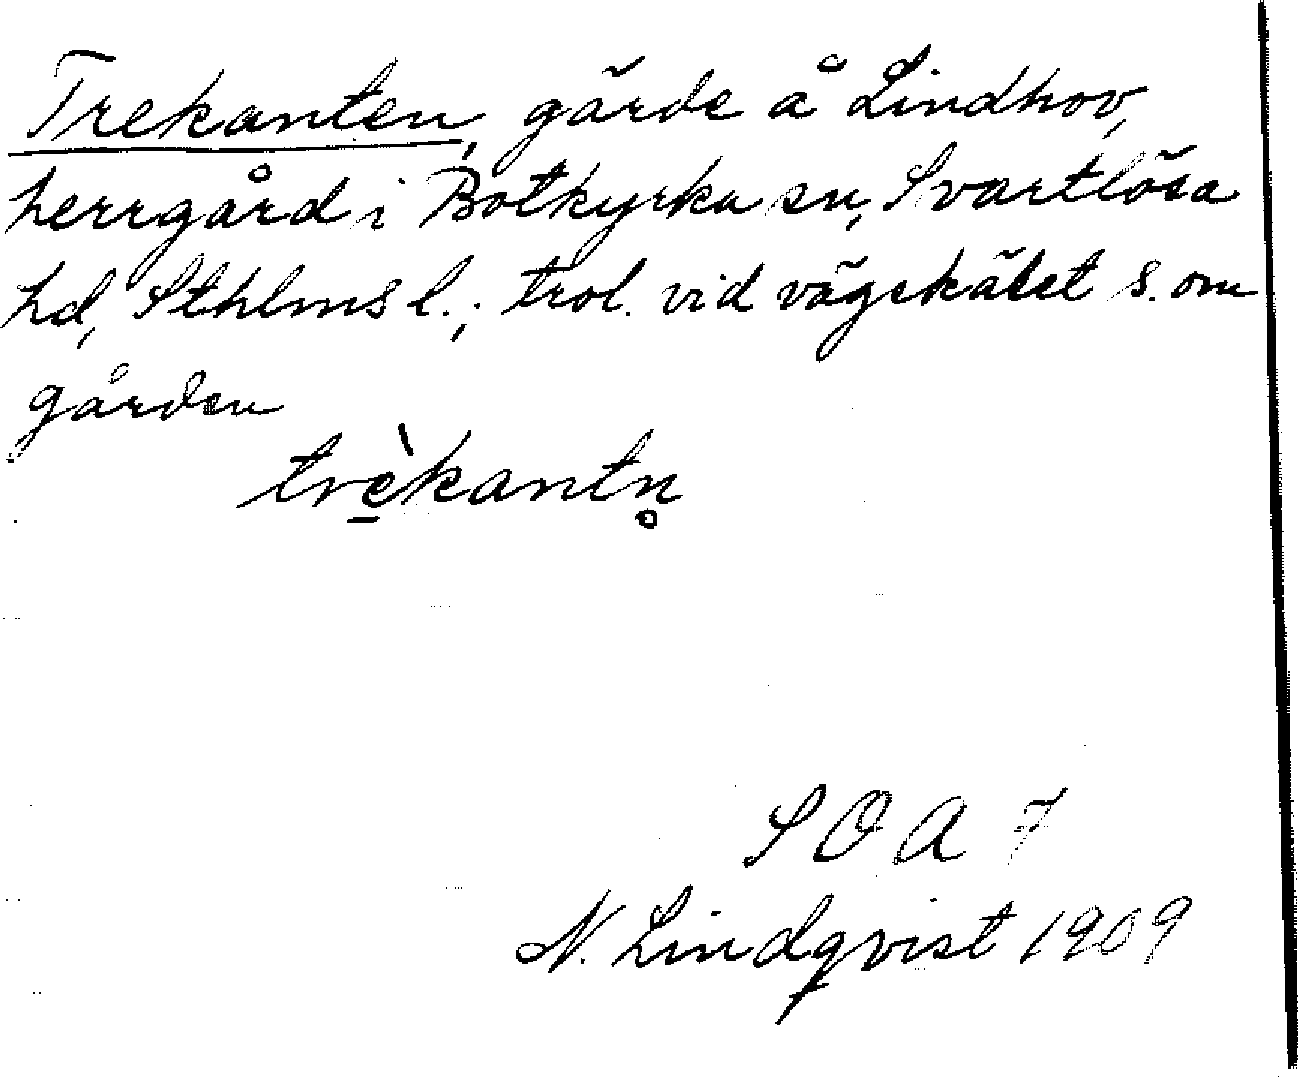 Trekanten, gärde å Lindhov,
herrgård i Botkyrka sn, Svartlösa
hd, Sthlms l.; trol. vid vägskälet s. om
gården
trè̱kantn̥
S O A 7
N. Lindqvist 1909